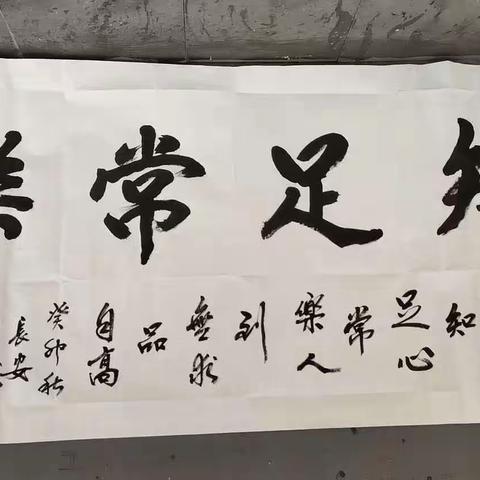 知足常
知
足心
常
樂人
到
無求
品
自高
癸卯秋
長安